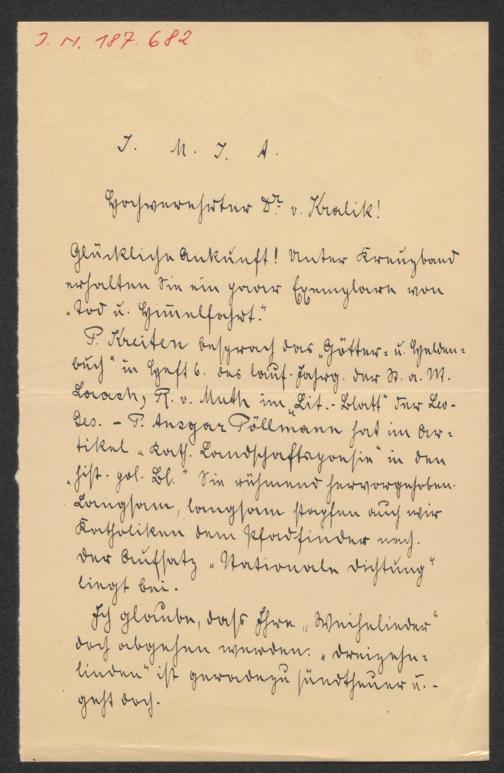 J. N. 187.682
J. M. J. A.
Hochverehrter Dr. v. Kralik!
Glückliche Ankunft! Unter Kreuzband
erhalten Sie ein paar Exemplare von
„Tod u. Himmelfahrt."
P. Kreiten besprach das „Götter- u. Helden-
buch" in Heft 6. des lauf. Jahrg. der St. a. M.
Laach, R. v. Muth im „Lit.-Blatt" der Leo-
Ges. – P. Ansgar Pöllmann hat im Ar-
tikel „Kath. Landschaftspoesie" in den
„hist. pol. Bl." Sie rühmend hervorgehoben.
Langsam, langsam stapfen auch wir
Katholiken dem Pfadfinder nach.
Der Aufsatz „Nationale Dichtung"
liegt bei.
Ich glaube, dass Ihre „Weihelieder"
doch abgehen werden. „Dreizehn-
linden" ist geradezu sündtheuer u. -
geht doch.